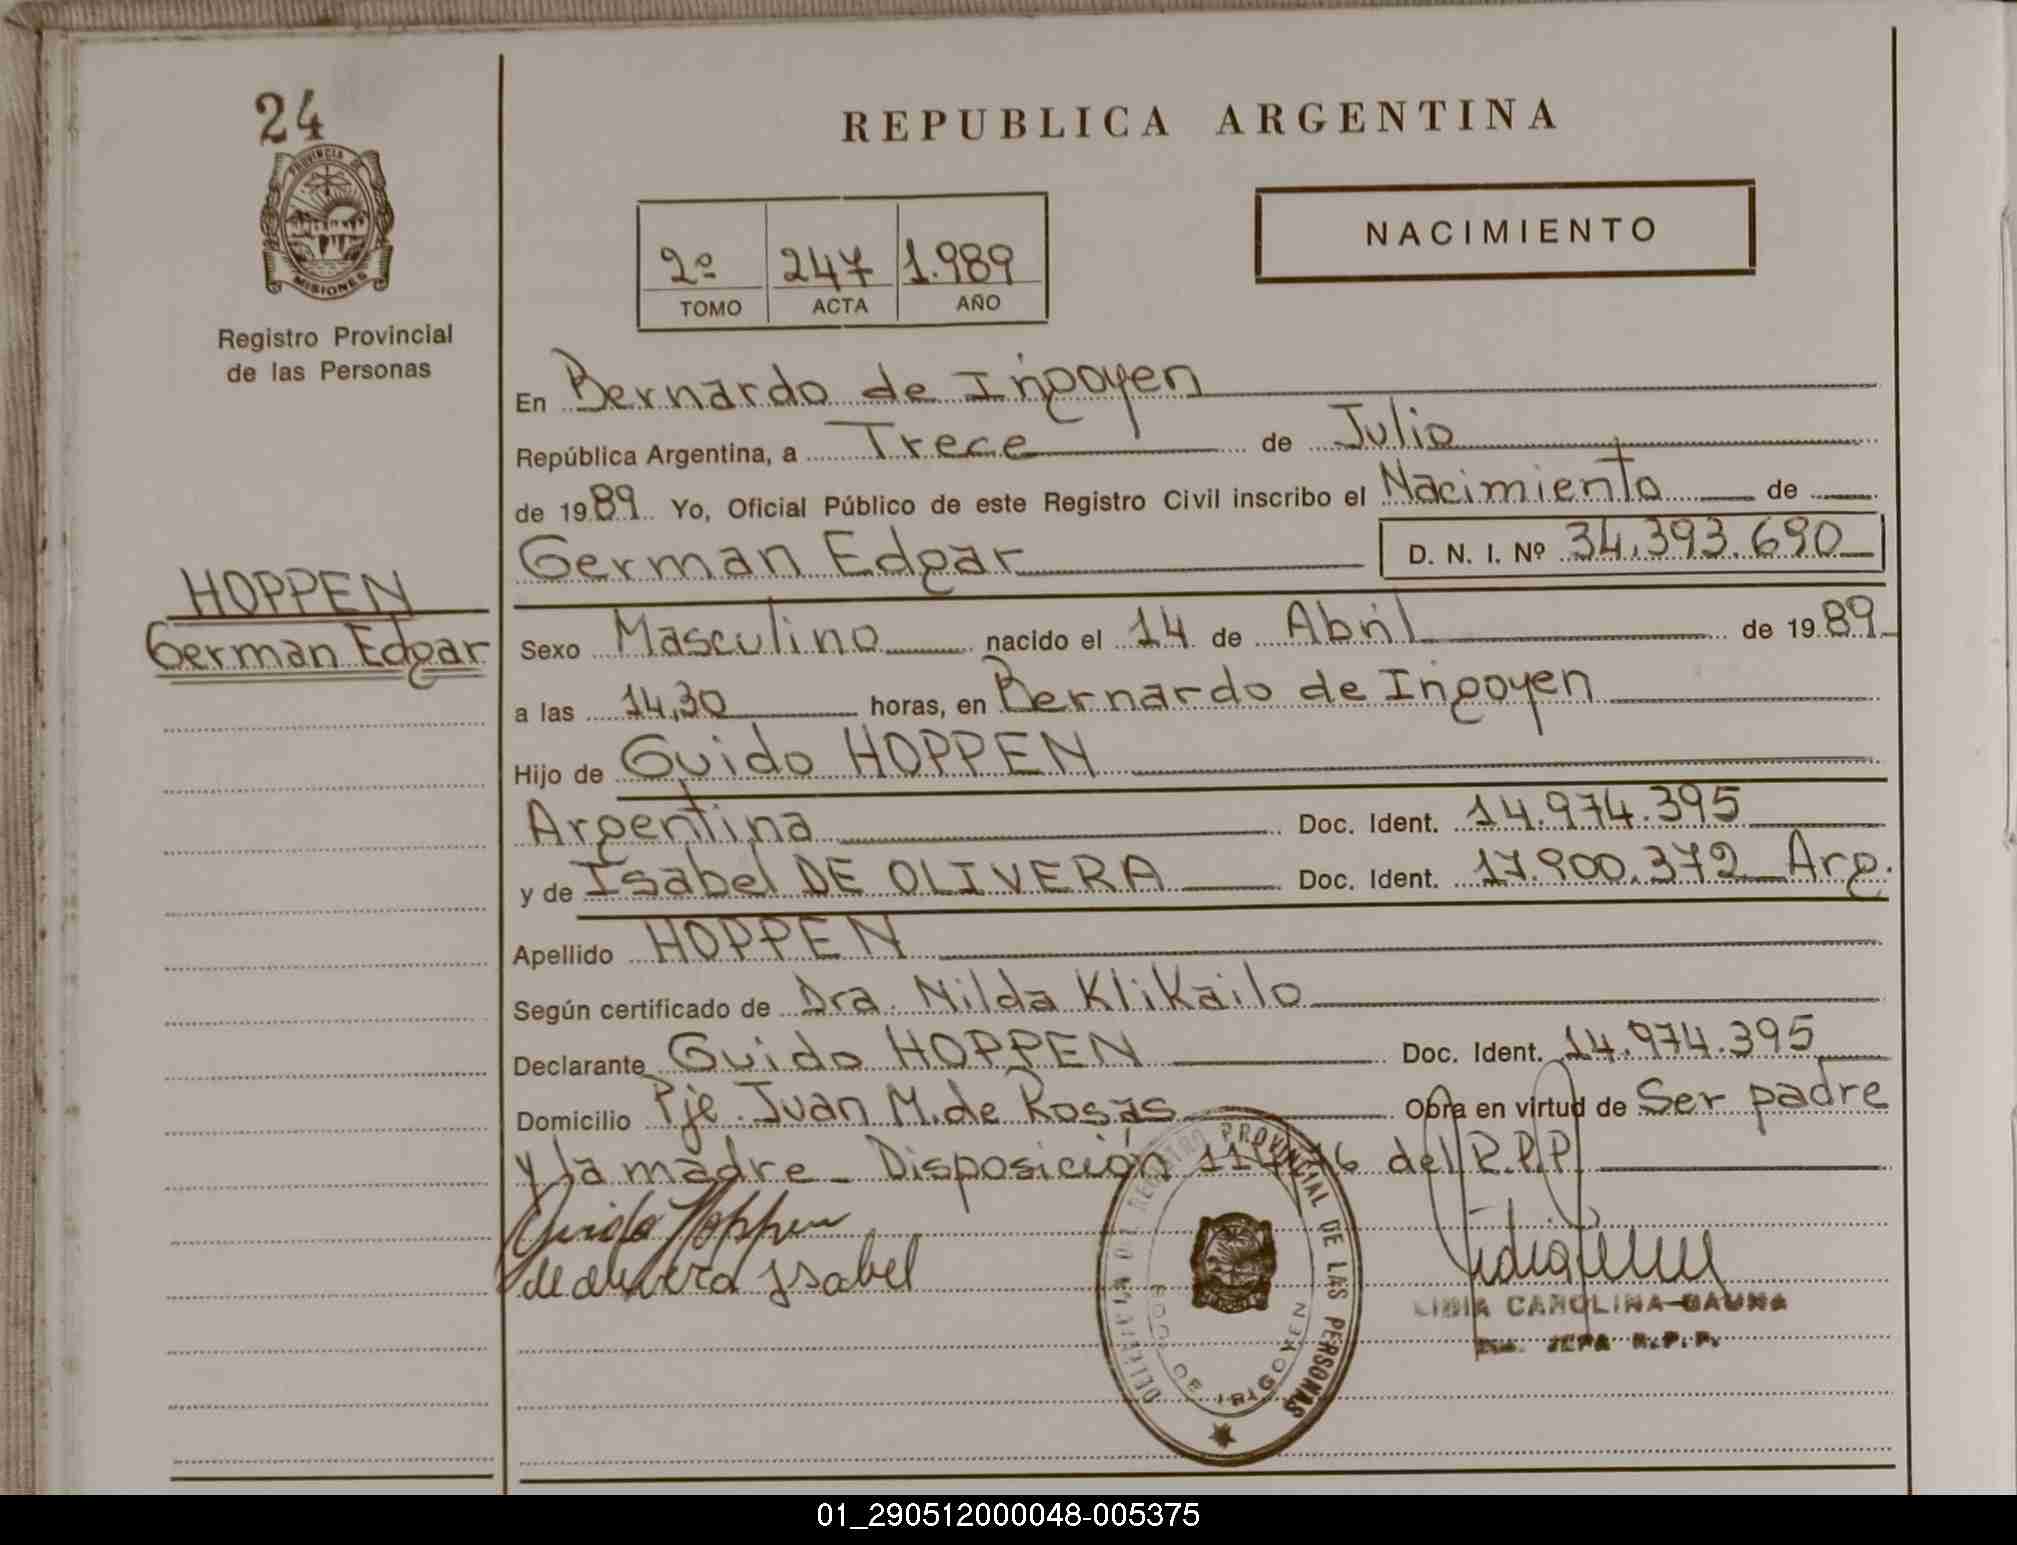 24
PROVINCIA DE
MISIONES
Registro Provincial
de las Personas
HOPPEN
German Edgar
REPUBLICA ARGENTINA
2º 247 1.989
TOMO ACTA AÑO
NACIMIENTO
En Bernardo de Irigoyen
República Argentina, a Trece de Julio
de 1989 Yo, Oficial Público de este Registro Civil inscribo el Nacimiento de
German Edgar D. N. I. Nº 34.393.690
Sexo Masculino nacido el 14 de Abril de 1989
a las 14,30 horas, en Bernardo de Irigoyen
Hijo de Guido HOPPEN
Argentina Doc. Ident. 14.974.395
y de Isabel DE OLIVERA Doc. Ident. 17.900.372 Arg.
Apellido HOPPEN
Según certificado de Dra. Nilda Klikailo
Declarante Guido HOPPEN Doc. Ident. 14.974.395
Domicilio Pje. Juan M. de Rosas Obra en virtud de Ser padre
y la madre - Disposición del R.P.P.
Guido Hoppen
de olivera Isabel
REGISTRO PROVINCIAL DE LAS PERSONAS
DE IRIGOYEN
LIDIA CAROLINA GAUNA
JEFA R.P.P.
01_290512000048-005375